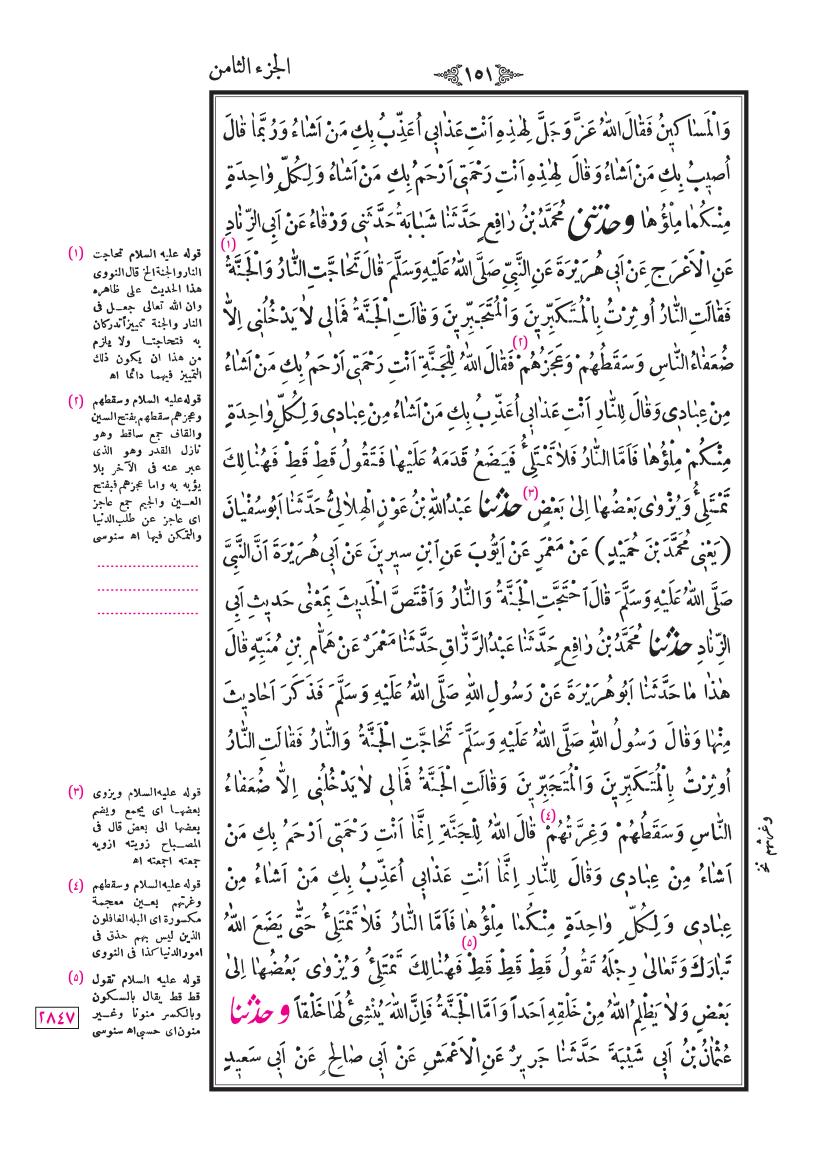 الجزء الثامن
١٥١
وَالْمَسَاكِينُ فَقَالَ اللّٰهُ عَزَّ وَجَلَّ لِهٰذِهِ اَنْتِ عَذَابِى اُعَذِّبُ بِكِ مَنْ اَشَاءُ وَرُبَّمَا قَالَ
اُصِيبُ بِكِ مَنْ اَشَاءُ وَقَالَ لِهٰذِهِ اَنْتِ رَحْمَتِى اَرْحَمُ بِكِ مَنْ اَشَاءُ وَلِكُلِّ وَاحِدَةٍ
مِنْكُمَا مِلْؤُهَا وحدثنى مُحَمَّدُ بْنُ رَافِعٍ حَدَّثَنَا شَبَابَةُ حَدَّثَنِى وَرْقَاءُ عَنْ اَبِى الزِّنَادِ
عَنِ الْاَعْرَجِ عَنْ اَبِى هُرَيْرَةَ عَنِ النَّبِىِّ صَلَّى اللّٰهُ عَلَيْهِ وَسَلَّمَ قَالَ تَحَاجَّتِ النَّارُ وَالْجَنَّةُ (١)
فَقَالَتِ النَّارُ اُوثِرْتُ بِالْمُتَكَبِّرِينَ وَالْمُتَجَبِّرِينَ وَقَالَتِ الْجَنَّةُ فَمَالِى لَا يَدْخُلُنِى اِلَّا
ضُعَفَاءُ النَّاسِ وَسَقَطُهُمْ وَعَجَزُهُمْ (٢) فَقَالَ اللّٰهُ لِلْجَنَّةِ اَنْتِ رَحْمَتِى اَرْحَمُ بِكِ مَنْ اَشَاءُ
مِنْ عِبَادِى وَقَالَ لِلنَّارِ اَنْتِ عَذَابِى اُعَذِّبُ بِكِ مَنْ اَشَاءُ مِنْ عِبَادِى وَلِكُلِّ وَاحِدَةٍ
مِنْكُمْ مِلْؤُهَا فَاَمَّا النَّارُ فَلَا تَمْتَلِئُ فَيَضَعُ قَدَمَهُ عَلَيْهَا فَتَقُولُ قَطْ قَطْ فَهُنَالِكَ
تَمْتَلِئُ وَيُزْوٰى بَعْضُهَا اِلٰى بَعْضٍ (٣) حدثنا عَبْدُ اللّٰهِ بْنُ عَوْنٍ الْهِلَالِىُّ حَدَّثَنَا اَبُو سُفْيَانَ
(يَعْنِى مُحَمَّدَ بْنَ حُمَيْدٍ) عَنْ مَعْمَرٍ عَنْ اَيُّوبَ عَنِ ابْنِ سِيرِينَ عَنْ اَبِى هُرَيْرَةَ اَنَّ النَّبِىَّ
صَلَّى اللّٰهُ عَلَيْهِ وَسَلَّمَ قَالَ احْتَجَّتِ الْجَنَّةُ وَالنَّارُ وَاقْتَصَّ الْحَدِيثَ بِمَعْنٰى حَدِيثِ اَبِى
الزِّنَادِ حدثنا مُحَمَّدُ بْنُ رَافِعٍ حَدَّثَنَا عَبْدُ الرَّزَّاقِ حَدَّثَنَا مَعْمَرٌ عَنْ هَمَّامِ بْنِ مُنَبِّهٍ قَالَ
هٰذَا مَا حَدَّثَنَا اَبُو هُرَيْرَةَ عَنْ رَسُولِ اللّٰهِ صَلَّى اللّٰهُ عَلَيْهِ وَسَلَّمَ فَذَكَرَ اَحَادِيثَ
مِنْهَا وَقَالَ رَسُولُ اللّٰهِ صَلَّى اللّٰهُ عَلَيْهِ وَسَلَّمَ تَحَاجَّتِ الْجَنَّةُ وَالنَّارُ فَقَالَتِ النَّارُ
اُوثِرْتُ بِالْمُتَكَبِّرِينَ وَالْمُتَجَبِّرِينَ وَقَالَتِ الْجَنَّةُ فَمَالِى لَا يَدْخُلُنِى اِلَّا ضُعَفَاءُ
النَّاسِ وَسَقَطُهُمْ وَغِرَّتُهُمْ (٤) قَالَ اللّٰهُ لِلْجَنَّةِ اِنَّمَا اَنْتِ رَحْمَتِى اَرْحَمُ بِكِ مَنْ
اَشَاءُ مِنْ عِبَادِى وَقَالَ لِلنَّارِ اِنَّمَا اَنْتِ عَذَابِى اُعَذِّبُ بِكِ مَنْ اَشَاءُ مِنْ
عِبَادِى وَلِكُلِّ وَاحِدَةٍ مِنْكُمَا مِلْؤُهَا فَاَمَّا النَّارُ فَلَا تَمْتَلِئُ حَتّٰى يَضَعَ اللّٰهُ
تَبَارَكَ وَتَعَالٰى رِجْلَهُ تَقُولُ قَطْ قَطْ قَطْ (٥) فَهُنَالِكَ تَمْتَلِئُ وَيُزْوٰى بَعْضُهَا اِلٰى
بَعْضٍ وَلَا يَظْلِمُ اللّٰهُ مِنْ خَلْقِهِ اَحَداً وَاَمَّا الْجَنَّةُ فَاِنَّ اللّٰهَ يُنْشِئُ لَهَا خَلْقاً وحدثنا
عُثْمَانُ بْنُ اَبِى شَيْبَةَ حَدَّثَنَا جَرِيرٌ عَنِ الْاَعْمَشِ عَنْ اَبِى صَالِحٍ عَنْ اَبِى سَعِيدٍ
(١) قوله عليه السلام تحاجت
النار والجنة الخ قال النووى
هذا الحديث على ظاهره
وان الله تعالى جعل فى
النار والجنة تمييزا تدركان
به فتحاجتا ولا يلزم
من هذا ان يكون ذلك
التمييز فيهما دائما اه
(٢) قوله عليه السلام وسقطهم
وعجزهم سقطهم بفتح السين
والقاف جمع ساقط وهو
نازل القدر وهو الذى
عبر عنه فى الآخر بلا
يؤبه به واما عجزهم فبفتح
العين والجيم جمع عاجز
اى عاجز عن طلب الدنيا
والتمكن فيها اه سنوسى
(٣) قوله عليه السلام ويزوى
بعضها اى يجمع ويضم
بعضها الى بعض قال فى
المصباح زويته ازويه
جمعته اجمعته اه
(٤) قوله عليه السلام وسقطهم
وغرتهم بعين معجمة
مكسورة اى البله الغافلون
الذين ليس بهم حذق فى
امور الدنيا كذا فى النووى
(٥) قوله عليه السلام تقول
قط قط يقال بالسكون
وبالكسر منونا وغير
منون اى حسبى اه سنوسى
٢٨٤٧
وغرتهم نخ